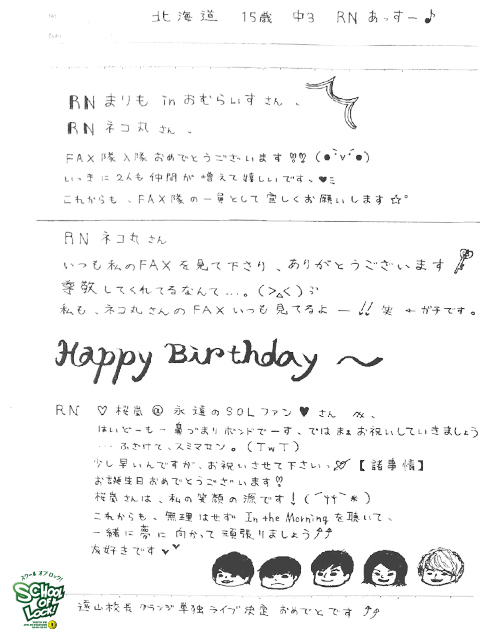 北海道 15歳 中3 RN あっすー♪
RN まりも in おむらいす さん、
RN ネコ丸 さん、
FAX隊入隊 おめでとうございます!! (●ˇ∨ˇ●)
いっきに2人も仲間が増えて嬉しいです。♥ミ
これからも、FAX隊の一員として宜しくお願いします☆°
RN ネコ丸 さん
いつも私のFAXを見て下さり、ありがとうございます
尊敬してくれてるなんて…。(>△<)
私も、ネコ丸さんのFAXいつも見てるよー!! 笑 ←ガチです。
Happy Birthday ～
RN ♡桜嵐@永遠のSOLファン♥ さん 、
はいどーもー鼻づまりボンドでーす、ではまぁお祝いしていきましょう
…ふざけて、スミマセン。(TwT)
少し早いんですが、お祝いさせて下さいっ 【諸事情】
お誕生日おめでとうございます!!
桜嵐さんは、私の笑顔の源です!
これからも、無理はせず In the Morningを聴いて、
一緒に夢に向かって頑張りましょう⤴⤴
友好きです♥♥
スクールオブロック!
SCHOOL OF LOCK!
遠山校長 グランジ単独ライブ決定 おめでとです ⤴⤴